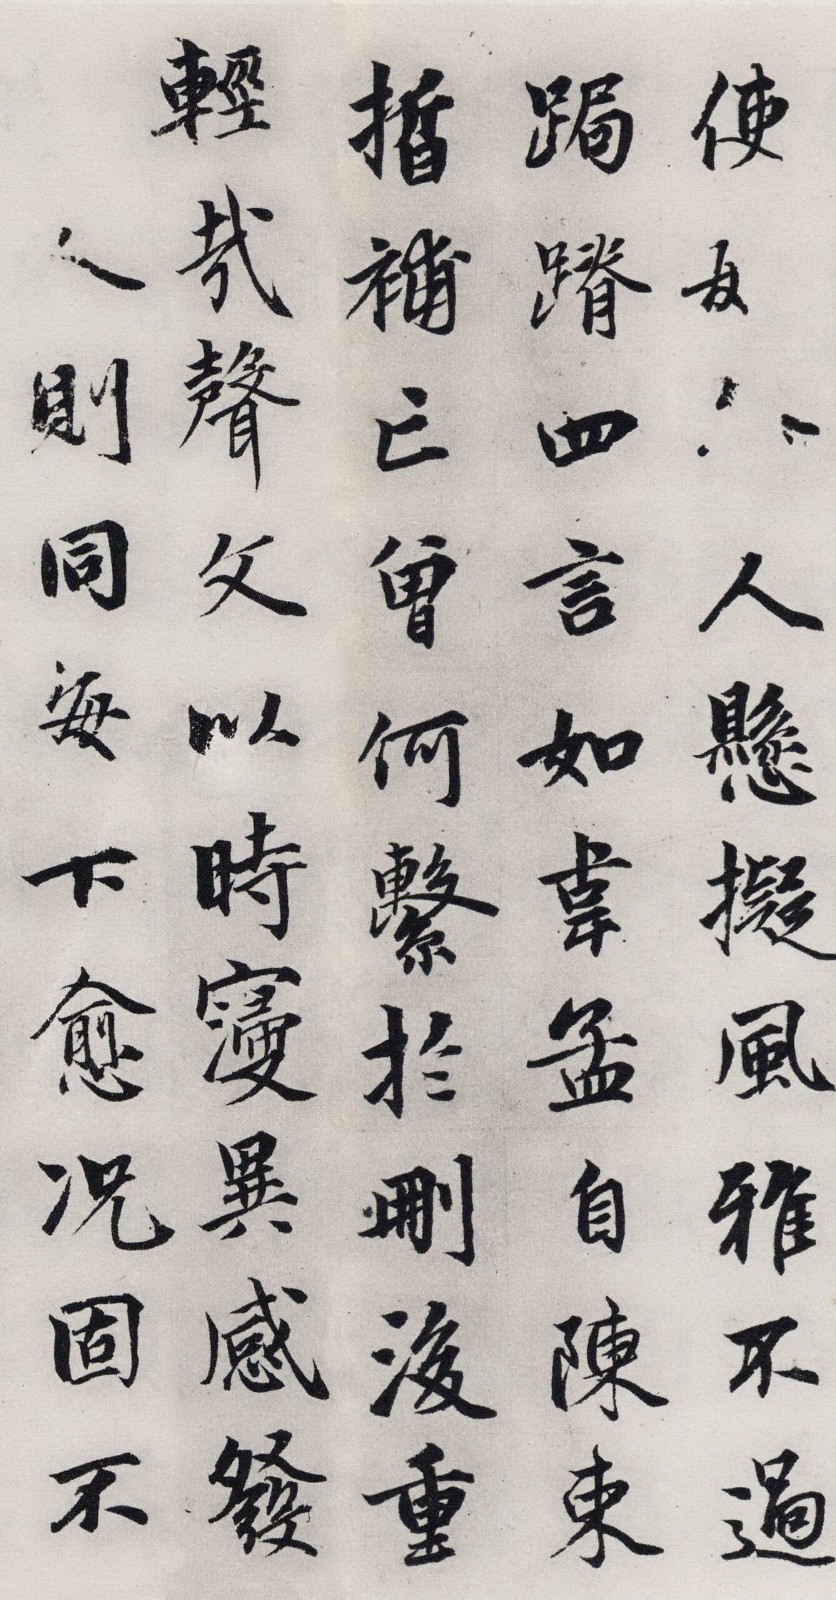 使 人懸擬風雅不過
跼蹐四言如韋孟自陳東
晳補亡曾何繫於刪後重
輕哉聲文以時變異感發
人則同每下愈况固不